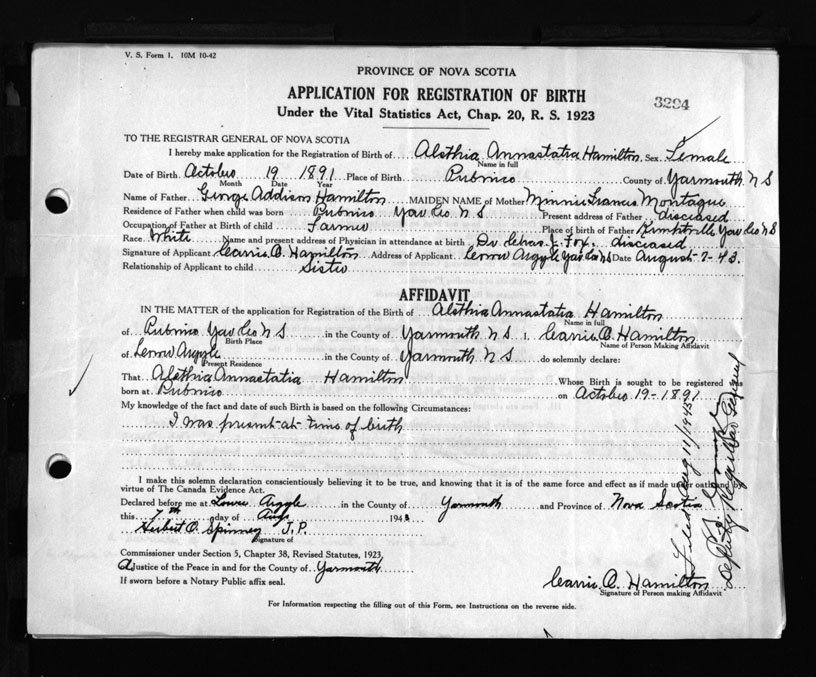 V. S. Form 1. 10M 10-42
PROVINCE OF NOVA SCOTIA
APPLICATION FOR REGISTRATION OF BIRTH
3294
Under the Vital Statistics Act, Chap. 20, R. S. 1923
TO THE REGISTRAR GENERAL OF NOVA SCOTIA
I hereby make application for the Registration of Birth of Alethia Annastatia Hamilton Sex Female
Name in full
Date of Birth October 19 1891 Place of Birth Pubnico County of Yarmouth N S
Month Date Year
Name of Father George Addison Hamilton MAIDEN NAME of Mother Minnie Francis Montague
Residence of Father when child was born Pubnico Yar Co. N S Present address of Father disceased
Occupation of Father at Birth of child Farmer Place of birth of Father Yar Co N S
Race White Name and present address of Physician in attendance at birth Dr. Fox. disceased
Signature of Applicant Carrie A. Hamilton Address of Applicant Lower Argyle Yar Co NS Date August 7-43.
Relationship of Applicant to child Sister
AFFIDAVIT
IN THE MATTER of the application for Registration of the Birth of Alethia Annastatia Hamilton
Name in full
of Pubnico Yar Co N S in the County of Yarmouth N S I, Carrie A. Hamilton
Birth Place Name of Person Making Affidavit
of Lower Argyle in the County of Yarmouth N S do solemnly declare:
Present Residence
That Alethia Annastatia Hamilton Whose Birth is sought to be registered was
born at Pubnico on October 19-1891
My knowledge of the fact and date of such Birth is based on the following Circumstances:
I was present-at-time of birth
I make this solemn declaration conscientiously believing it to be true, and knowing that it is of the same force and effect as if made under oath and by
virtue of The Canada Evidence Act.
Declared before me at Lower Argyle in the County of Yarmouth and Province of Nova Scotia
this 7th day of Aug 1943
Herbert O. Spinney J.P.
Signature of
Commissioner under Section 5, Chapter 38, Revised Statutes, 1923,
A Justice of the Peace in and for the County of Yarmouth
If sworn before a Notary Public affix seal.
Carrie A. Hamilton
Signature of Person making Affidavit
For Information respecting the filling out of this Form, see Instructions on the reverse side.
Filed Aug 11/1943
Deputy Registrar General